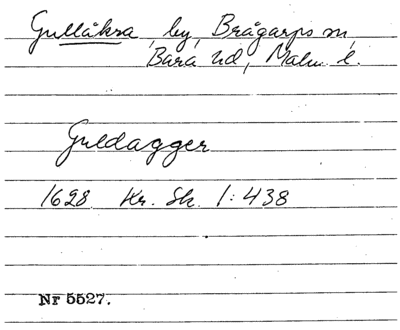 Gullåkra, by, Brågarps sn,
Bara hd, Malm. l.
Guldagger
1628 Kr. Sk. 1:438
Nr 5527.